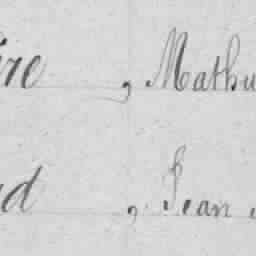 ire , Mathu
d , Jean